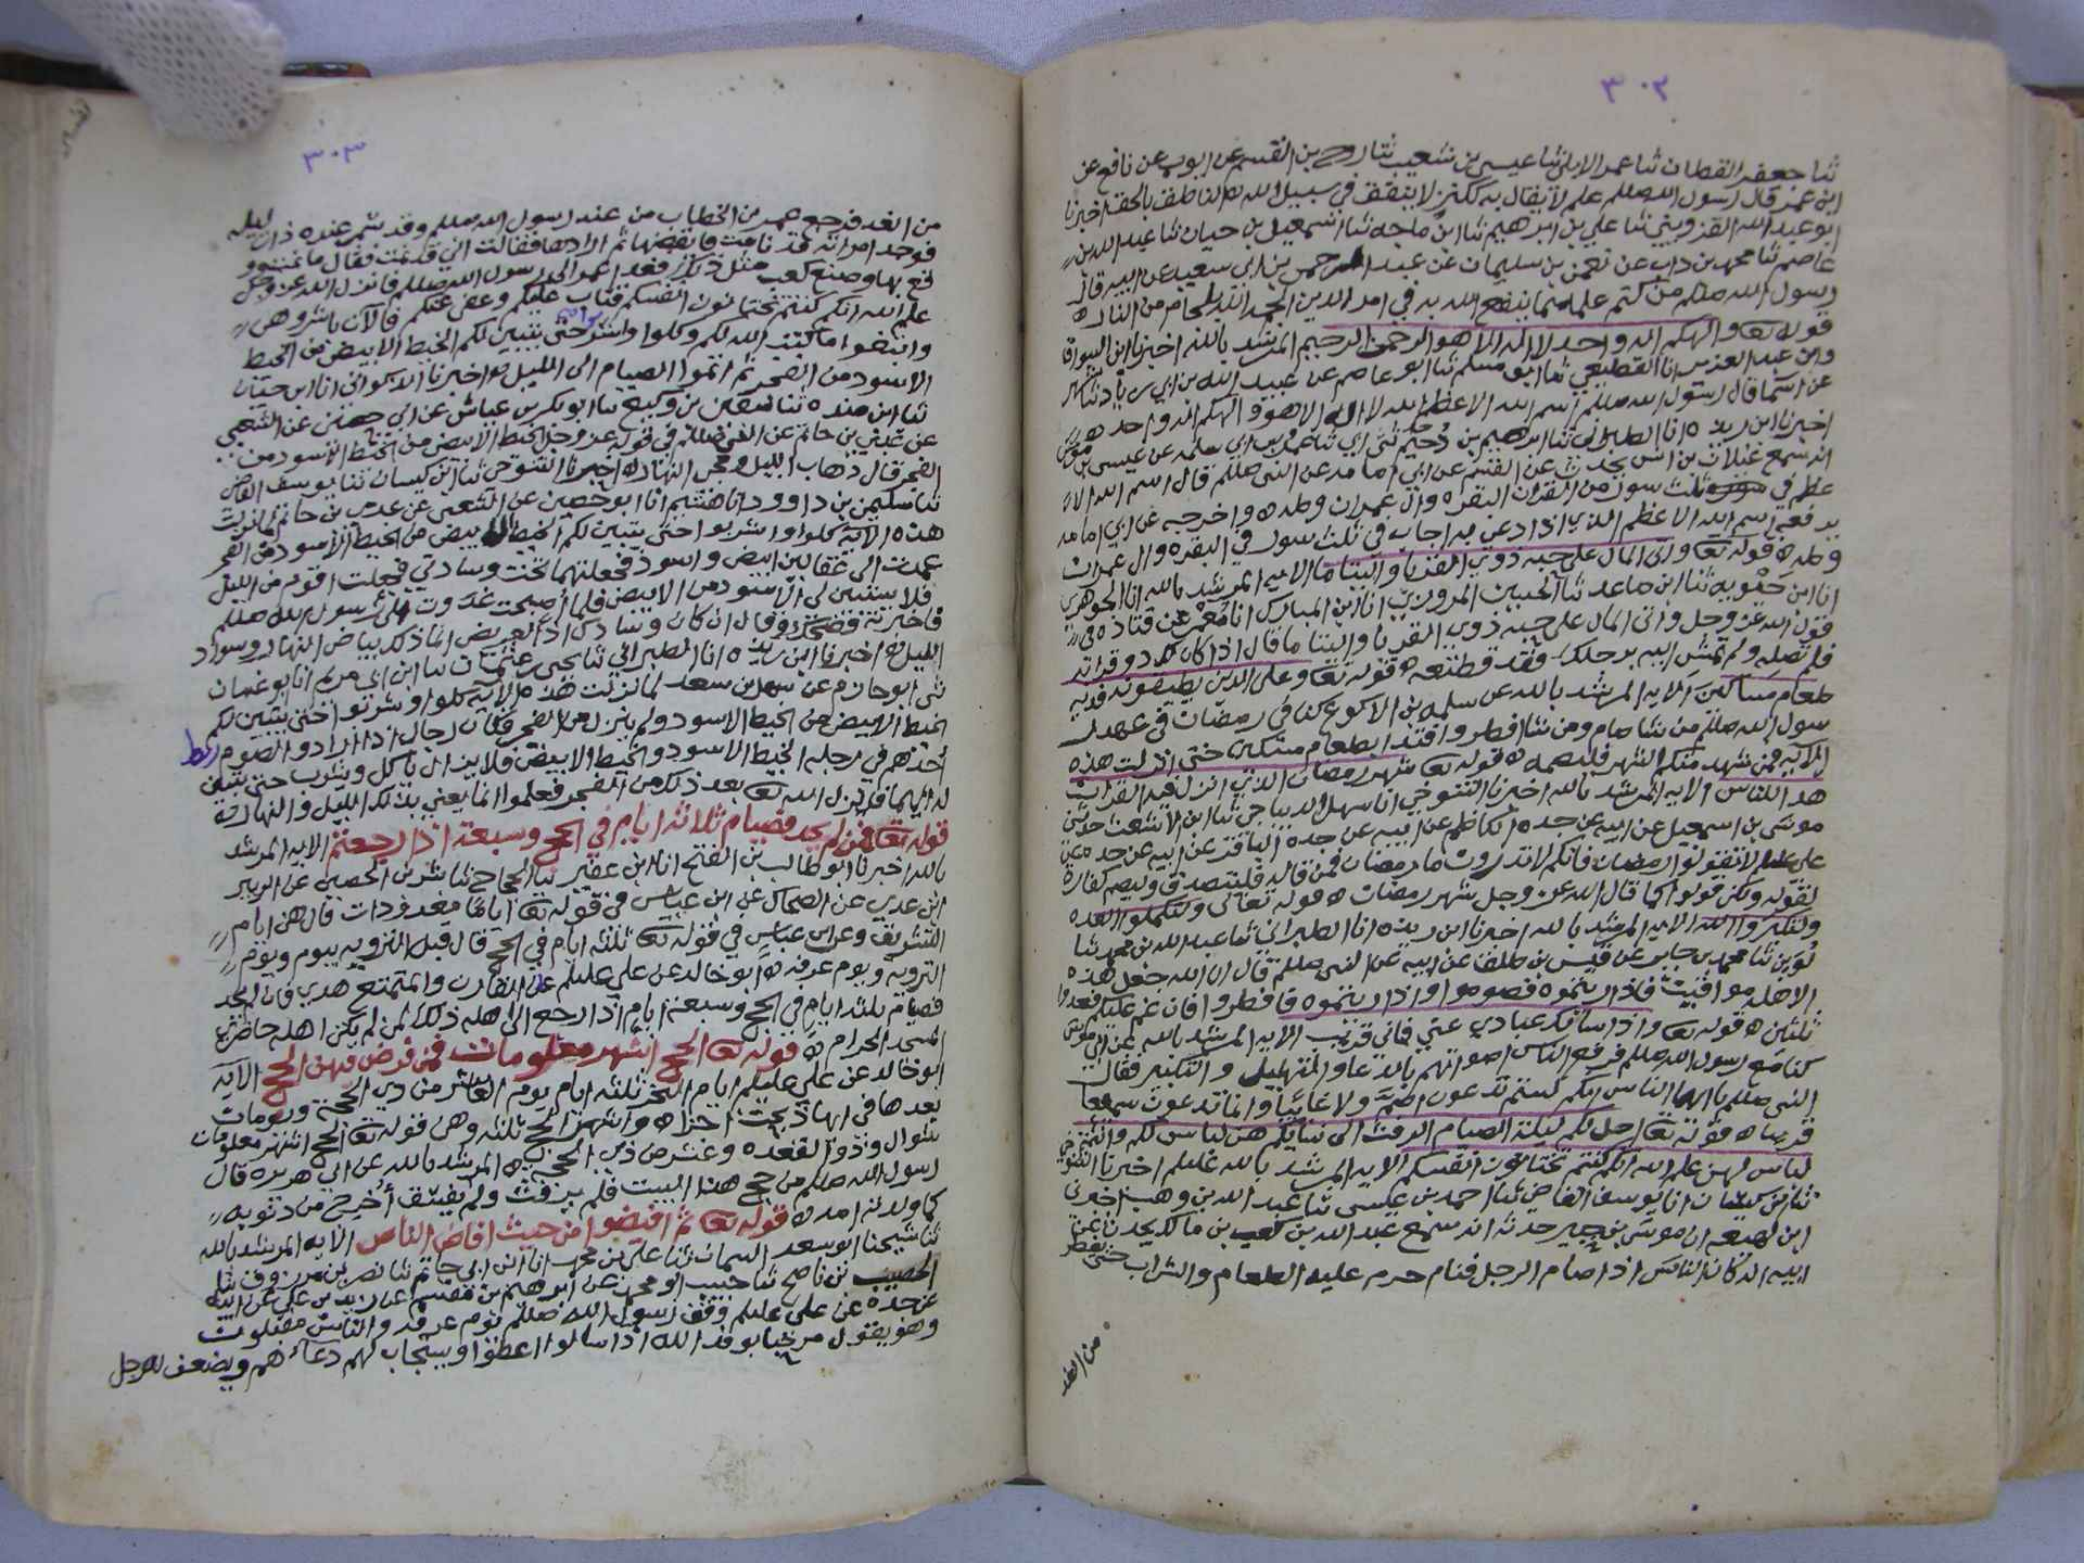 ٣٠٢
ثنا جعفر القطان ثنا عمر الايلي ثنا عيسى بن شعيب ثنا روح بن القسم عن ايوب عن نافع عن
ابن عمر قال رسول الله صللم علم لا يقال به ككنز لا ينفق في سبيل الله اخبرنا
ابو عبد الله القزويني ثنا علي بن ابرهيم ثنا ابن ماجه ثنا اسمعيل بن حيان ثنا عبد الله بن
عاصم ثنا محمد بن داب عن صفوان بن سليمان عن عبد الرحمن بن ابي سعيد عن ابيه قال
رسول الله صللم من كتم علما مما ينفع الله به في امر الدين الجمه الله بلجام من النار ه
قوله تعا والهكم اله واحد لا اله الا هو الرحمن الرحيم المرشد بالله اخبرنا ابن السواق
وابن عبد العزيز انا القطيعي ثنا ابو مسلم ثنا ابو عاصم عن عبيد الله بن ابي زياد
عن اسما قال رسول الله صللم اسم الله الاعظم الله لا اله الا هو والهكم اله واحد ه
اخبرنا ابن ريذه انا الطبراني ثنا ابرهيم بن دحيم ثني ابي ثنا عمرو بن ابي سلمه عن عيسى بن موسى
انه سمع غيلان بن انس يحدث عن القسم عن ابي امامه عن النبي صللم قال اسم الله الا
عظم في ثلث سور من القران البقره وال عمران وطه ه واخرجه عن ابي امامه
يرفعه اسم الله الاعظم الذي اذا دعي به اجاب في ثلث سور في البقره وال عمران
وطه ه قوله تعا واتى المال على حبه ذوي القربا واليتاما الايه المرشد بالله انا الجوهري
انا ابن حيويه ثنا ابن صاعد ثنا الحسين المروزي انا ابن المبارك انا معمر عن قتاده في
قول الله عز وجل واتى المال على حبه ذوي القربا واليتاما قال اذا كان لك ذو قرابه
فلم تصله ولم تمش اليه برجلك فقد قطعته ه قوله تعا وعلى الذين يطيقونه فديه
طعام مساكين الايه المرشد بالله عن سلمه بن الاكوع كنا في رمضان في عهد ر
سول الله صللم من شا صام ومن شا افطر وافتدا بطعام مسكين حتى انزلت هذه
الايه فمن شهد منكم الشهر فليصمه ه قوله تعا شهر رمضان الذي انزل فيه القران
هدا للناس الايه المرشد بالله اخبرنا التنوخي انا سهل الديباجي ثنا ابن الاشعث حدثني
موسى بن اسمعيل عن ابيه عن جده الكاظم عن ابيه عن جده الباقر عن ابيه عن جده عن
علي علم لا تقولوا رمضان فانكم لا تدرون ما رمضان فمن قاله فليتصدق وليصم كفارة
لقوله ولكن قولوا كما قال الله عز وجل شهر رمضان ه قوله تعالى ولتكملوا العده
ولتكبروا الله الايه المرشد بالله اخبرنا ابن ريذه انا الطبراني ثنا عبد الله بن محمد ثنا
لوين ثنا محمد بن جابر عن قيس بن طلق عن ابيه عن النبي صللم قال ان الله جعل هذه
الاهله مواقيت فاذا رايتموه فصوموا واذا رايتموه فافطروا فان غم عليكم فعدوا
ثلثين ه قوله تعا واذا سالك عبادي عني فاني قريب الايه المرشد بالله عن ابي موسى
كنا مع رسول الله صللم فرفع الناس اصواتهم بالدعا والتهليل والتكبير فقال
النبي صللم يا ايها الناس انكم لستم تدعون اصم ولا غائبا وانما تدعون سميعا
قريبا ه قوله تعا احل لكم ليلة الصيام الرفث الى نسايكم هن لباس لكم وانتم
لباس لهن علم الله انكم كنتم تختانون انفسكم الايه المرشد بالله علم اخبرنا التنوخي
ثنا ابن كيسان انا يوسف القاضي ثنا احمد بن عيسى ثنا عبد الله بن وهب اخبرني
ابن لهيعه ان موسى بن جبير حدثه انه سمع عبد الله بن كعب بن مالك يحدث عن
ابيه انه كان الناس اذا صام الرجل فنام حرم عليه الطعام والشراب حتى يفطر
من الغد
٣٠٣
من الغد فرجع عمر بن الخطاب من عند رسول الله صللم وقد سمر عنده ذات ليله
فوجد امراته قد نامت فايقضها ثم ارادها فقالت اني قد نمت فقال ما نمت و
قع بها وصنع كعب مثل ذلك فغدا عمر الى رسول الله صللم فانزل الله عز وجل
علم الله انكم كنتم تختانون انفسكم فتاب عليكم وعفى عنكم فالآن باشروهن
وابتغوا ما كتب الله لكم وكلوا واشربوا حتى يتبين لكم الخيط الابيض من الخيط
الاسود من الفجر ثم اتموا الصيام الى الليل ه اخبرنا الذكواني انا ابن حيان
ثنا ابن منده ثنا سفين بن وكيع ثنا ابو بكر بن عياش عن ابي حصين عن الشعبي
عن عدي بن حاتم عن النبي صللم في قوله عز وجل الخيط الابيض من الخيط الاسود من
الفجر قال ذهاب الليل ومجي النهار ه اخبرنا التنوخي ثنا ابن كيسان ثنا يوسف القاضي
ثنا سليمن بن داوود انا هشيم انا ابو حصين عن الشعبي عن عدي بن حاتم لما نزلت
هذه الايه كلوا واشربوا حتى يتبين لكم الخيط الابيض من الخيط الاسود من الفجر
عمدت الى عقالين ابيض واسود فجعلتهما تحت وسادتي فجعلت اقوم من الليل
فلا يستبين لي الاسود من الابيض فلما اصبحت غدوت على رسول الله صللم
فاخبرته فضحك وقال ان كان وسادك اذا لعريض انما ذلك بياض النهار وسواد
الليل ه اخبرنا ابن ريذه انا الطبراني ثنا يحيى بن عثمان ثنا ابن ابي مريم انا ابو غسان
ثني ابو حازم عن سهل بن سعد لما نزلت هذه الايه كلوا واشربوا حتى يتبين لكم
الخيط الابيض من الخيط الاسود ولم ينزل من الفجر فكان رجال اذا ارادوا الصوم ربط
احدهم في رجليه الخيط الاسود والخيط الابيض فلا يزال ياكل ويشرب حتى يتبين
له ايهما فانزل الله تعا بعد ذلك من الفجر فعلموا انما يعني بذلك الليل والنهار ه
قوله تعا فمن لم يجد فصيام ثلاثه ايام في الحج وسبعة اذا رجعتم الايه المرشد
بالله اخبرنا ابو طالب بن الفتح انا ابن عفير ثنا الحجاج ثنا بشر بن الحصين عن الزبير
ابن عدي عن الضحاك عن ابن عباس في قوله تعا اياما معدودات قال هن ايام
التشريق وعن ابن عباس في قوله تعا ثلثه ايام في الحج قال قبل الترويه بيوم ويوم
الترويه ويوم عرفه ه ابو خالد عن علي علم على القارن والمتمتع هدي فان لم يجد
فصيام ثلثه ايام في الحج وسبعة ايام اذا رجع الى اهله ذلك لمن لم يكن اهله حاضري
المسجد الحرام ه قوله تعا الحج اشهر معلومات فمن فرض فيهن الحج الايه
ابو خالد عن علي علم ايام النحر ثلثه ايام يوم العاشر من ذي الحجة ويومان
بعدها في ايها ذبحت اجزاه واشهر الحج ثلثه وهن قوله تعا الحج اشهر معلومات
شوال وذو القعده وعشر من ذي الحجه ه المرشد بالله عن ابي هريره قال
رسول الله صللم من حج هذا البيت فلم يرفث ولم يفسق اخرج من ذنوبه
كما ولدته امه ه قوله تعا ثم افيضوا من حيث افاض الناس الايه المرشد بالله
ثنا شيخنا ابو سعد السمان ثنا علي بن محمد انا ابن ابي حاتم ثنا نصر بن مرزوق ثنا
الخصيب بن ناصح ثنا حبيب ابو محمد عن ابرهيم بن عن زيد بن علي عن ابيه
عن جده عن علي علم وقف رسول الله صللم يوم عرفه والناس مقبلون
وهو يقول مرحبا بوفد الله اذا سالوا اعطوا ويستجاب لهم دعاءهم ويضعف للرجل